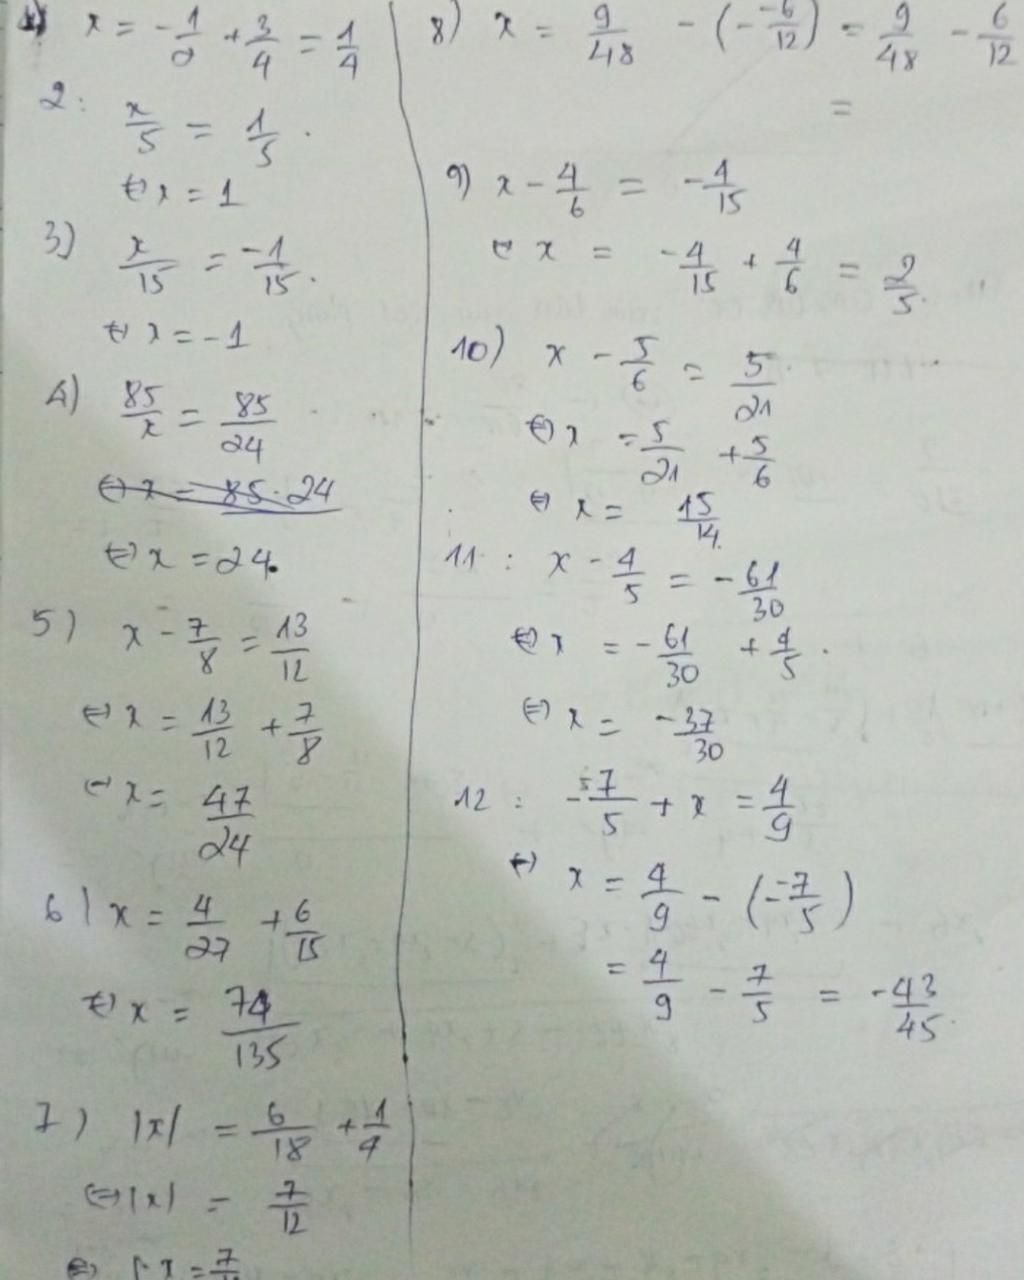 1) x = -1/2 + 3/4 = 1/4
2: x/5 = 1/5.
⇔ x = 1
3) x/15 = -1/15.
⇔ x = -1
4) 85/x = 85/24
⇔ x = 85.24
⇔ x = 24.
5) x - 7/8 = 13/12
⇔ x = 13/12 + 7/8
⇔ x = 47/24
6) x = 4/27 + 6/15
⇔ x = 74/135
7) |x| = 6/18 + 1/4
⇔ |x| = 7/12
⇔ x = 7/
8) x = 9/48 - (--6/12) = 9/48 - 6/12
=
9) x - 4/6 = -4/15
⇔ x = -4/15 + 4/6 = 2/5.
10) x - 5/6 = 5/21
⇔ x = 5/21 + 5/6
⇔ x = 15/14.
11: x - 4/5 = -61/30
⇔ x = -61/30 + 4/5.
⇔ x = -37/30
12: -7/5 + x = 4/9
⇔ x = 4/9 - (--7/5)
= 4/9 - 7/5 = -43/45.